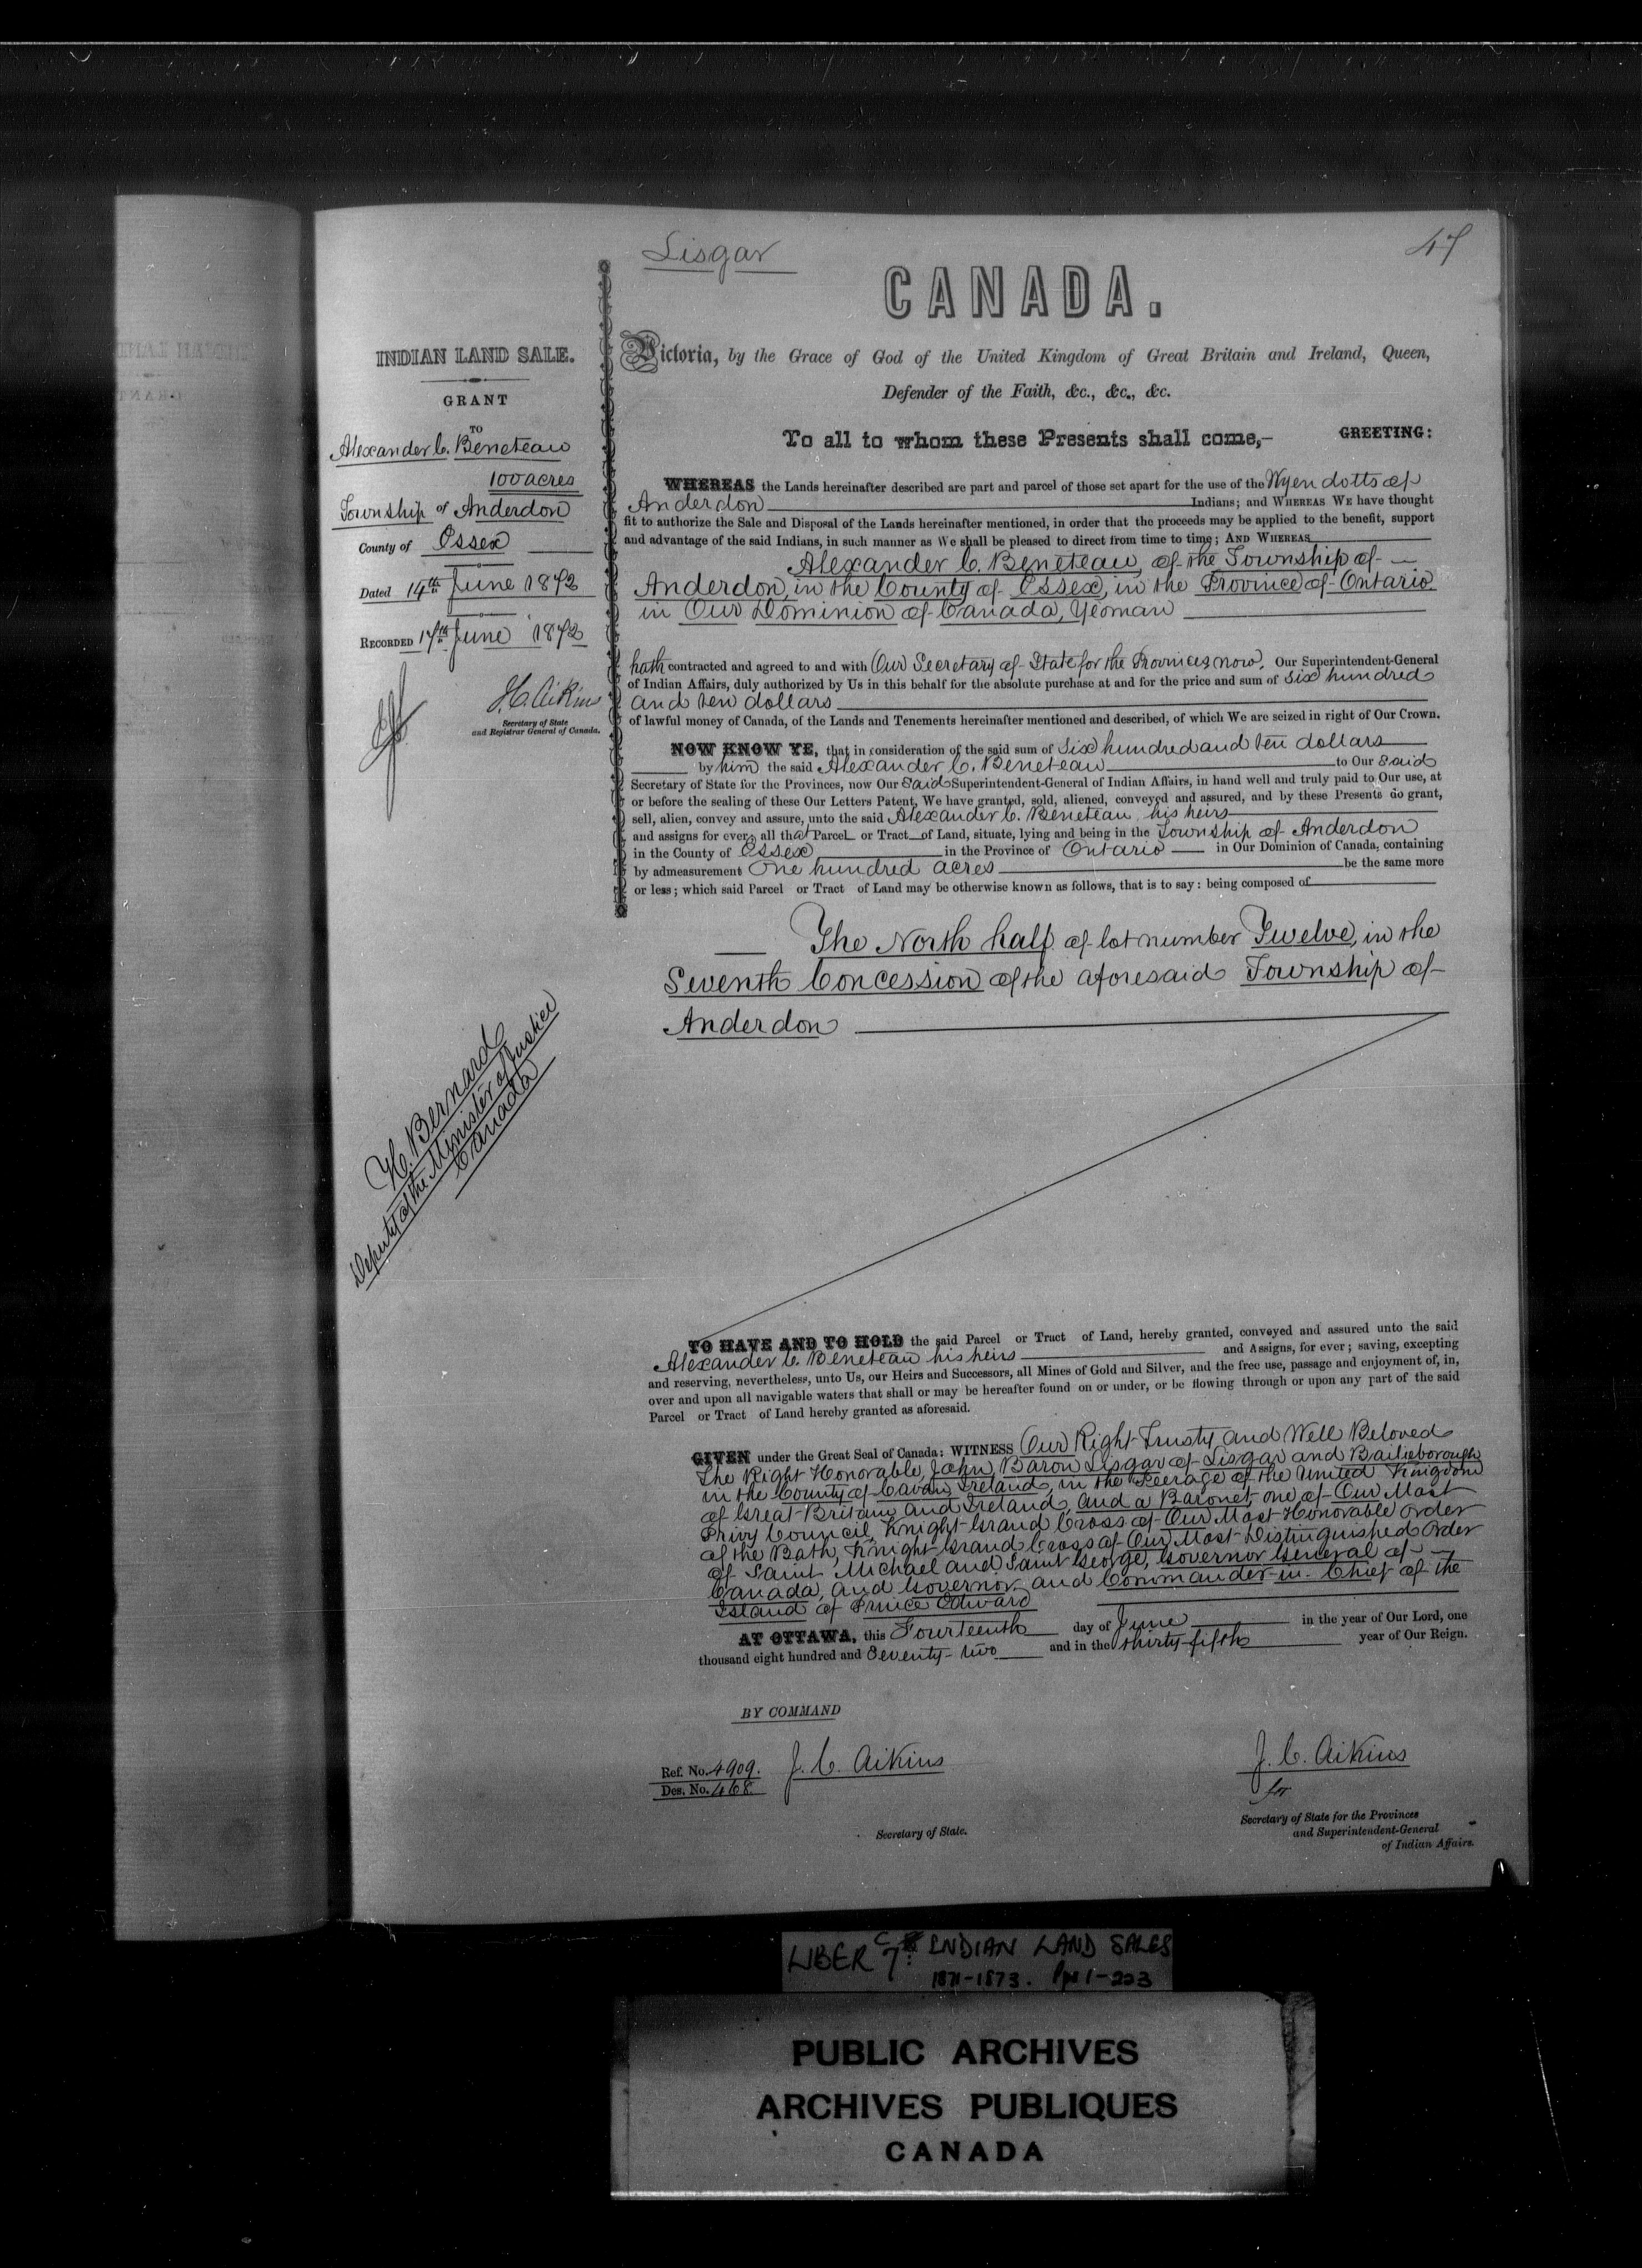 Lisgar
47
CANADA.
INDIAN LAND SALE.
GRANT
TO
Alexander C. Beneteau
100 acres
Township of Anderdon
County of Essex
Dated 14th June 1872
RECORDED 17th June 1872
J.C. Aikins
Secretary of State
and Registrar General of Canada.
H. Bernard
Deputy of the Minister of Justice
Canada
Victoria, by the Grace of God of the United Kingdom of Great Britain and Ireland, Queen,
Defender of the Faith, &c., &c., &c.
To all to whom these Presents shall come,— GREETING:
WHEREAS the Lands hereinafter described are part and parcel of those set apart for the use of the Wyendotts of
Anderdon Indians; and WHEREAS WE have thought
fit to authorize the Sale and Disposal of the Lands hereinafter mentioned, in order that the proceeds may be applied to the benefit, support
and advantage of the said Indians, in such manner as We shall be pleased to direct from time to time; AND WHEREAS
Alexander C. Beneteau, of the Township of
Anderdon, in the County of Essex, in the Province of Ontario
in Our Dominion of Canada, Yeoman
hath contracted and agreed to and with Our Secretary of State for the Provinces now, Our Superintendent-General
of Indian Affairs, duly authorized by Us in this behalf for the absolute purchase at and for the price and sum of Six hundred
and ten dollars
of lawful money of Canada, of the Lands and Tenements hereinafter mentioned and described, of which We are seized in right of Our Crown.
NOW KNOW YE, that in consideration of the said sum of Six hundred and ten dollars
by him the said Alexander C. Beneteau to Our Said
Secretary of State for the Provinces, now Our Said Superintendent-General of Indian Affairs, in hand well and truly paid to Our use, at
or before the sealing of these Our Letters Patent, We have granted, sold, aliened, conveyed and assured, and by these Presents do grant,
sell, alien, convey and assure, unto the said Alexander C. Beneteau, his heirs
and assigns for ever, all that Parcel or Tract of Land, situate, lying and being in the Township of Anderdon
in the County of Essex in the Province of Ontario in Our Dominion of Canada, containing
by admeasurement One hundred acres be the same more
or less; which said Parcel or Tract of Land may be otherwise known as follows, that is to say: being composed of
The North half of lot number Twelve, in the
Seventh Concession of the aforesaid Township of
Anderdon
TO HAVE AND TO HOLD the said Parcel or Tract of Land, hereby granted, conveyed and assured unto the said
Alexander C. Beneteau his heirs and Assigns, for ever; saving, excepting
and reserving, nevertheless, unto Us, our Heirs and Successors, all Mines of Gold and Silver, and the free use, passage and enjoyment of, in,
over and upon all navigable waters that shall or may be hereafter found on or under, or be flowing through or upon any part of the said
Parcel or Tract of Land hereby granted as aforesaid.
GIVEN under the Great Seal of Canada: WITNESS Our Right Trusty and Well Beloved
The Right Honorable, John, Baron Lisgar of Lisgar and Bailieborough
in the County of Cavan, Ireland, in the Peerage of the United Kingdom
of Great Britain and Ireland, and a Baronet, one of Our Most
Privy Council, Knight Grand Cross of Our Most Honorable Order
of the Bath, Knight Grand Cross of Our Most Distinguished Order
of Saint Michael and Saint George, Governor General of
Canada, and Governor and Commander-in-Chief of the
Island of Prince Edward
AT OTTAWA, this Fourteenth day of June in the year of Our Lord, one
thousand eight hundred and Seventy-two and in the thirty-fifth year of Our Reign.
BY COMMAND
Ref. No. 4909.
Des. No. 468.
J. C. Aikins
Secretary of State.
J. C. Aikins
for
Secretary of State for the Provinces
and Superintendent-General
of Indian Affairs.
LIBER C 7: INDIAN LAND SALES
1871-1873. Pps 1-223
PUBLIC ARCHIVES
ARCHIVES PUBLIQUES
CANADA